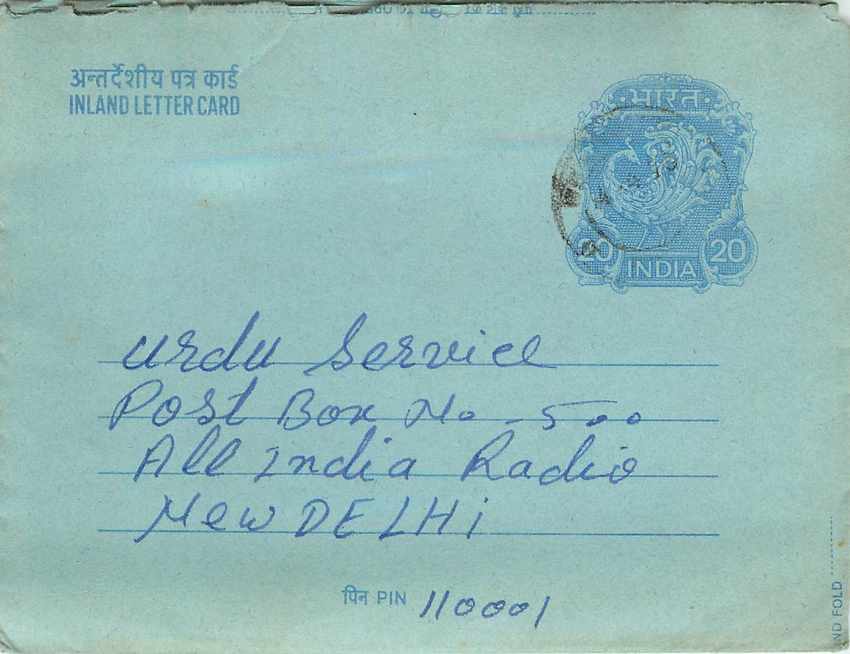 अन्तर्देशीय पत्र कार्ड
INLAND LETTER CARD
भारत
20 INDIA 20
Urdu Service
Post Box No. 500
All India Radio
New DELHi
पिन PIN 110001
FOLD